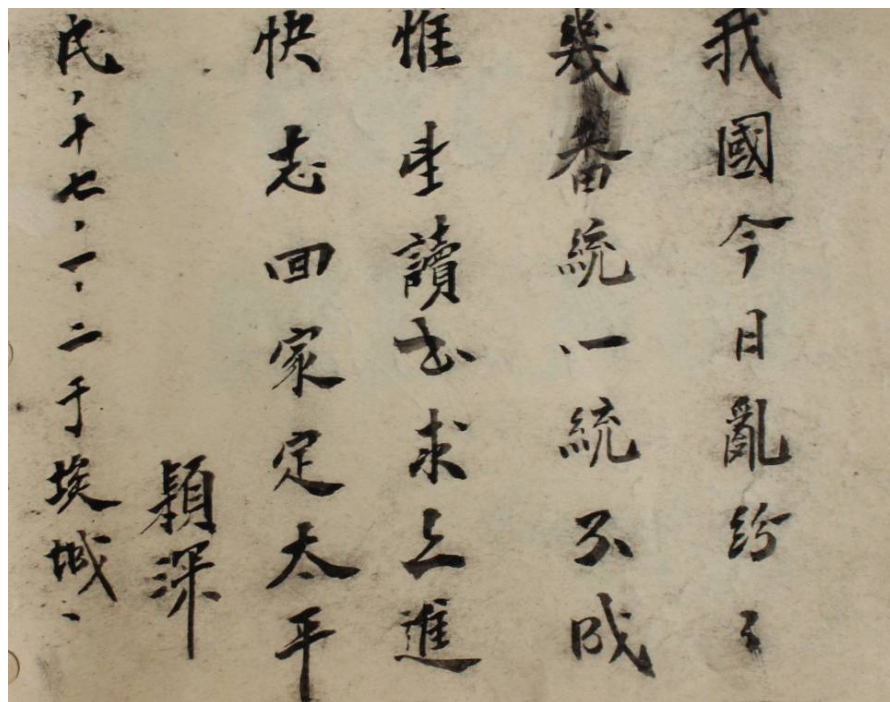 我國今日亂紛々
幾番統一統不成
惟望讀书求上進
快志回家定太平
穎深
民、十七、一、二于埃城、